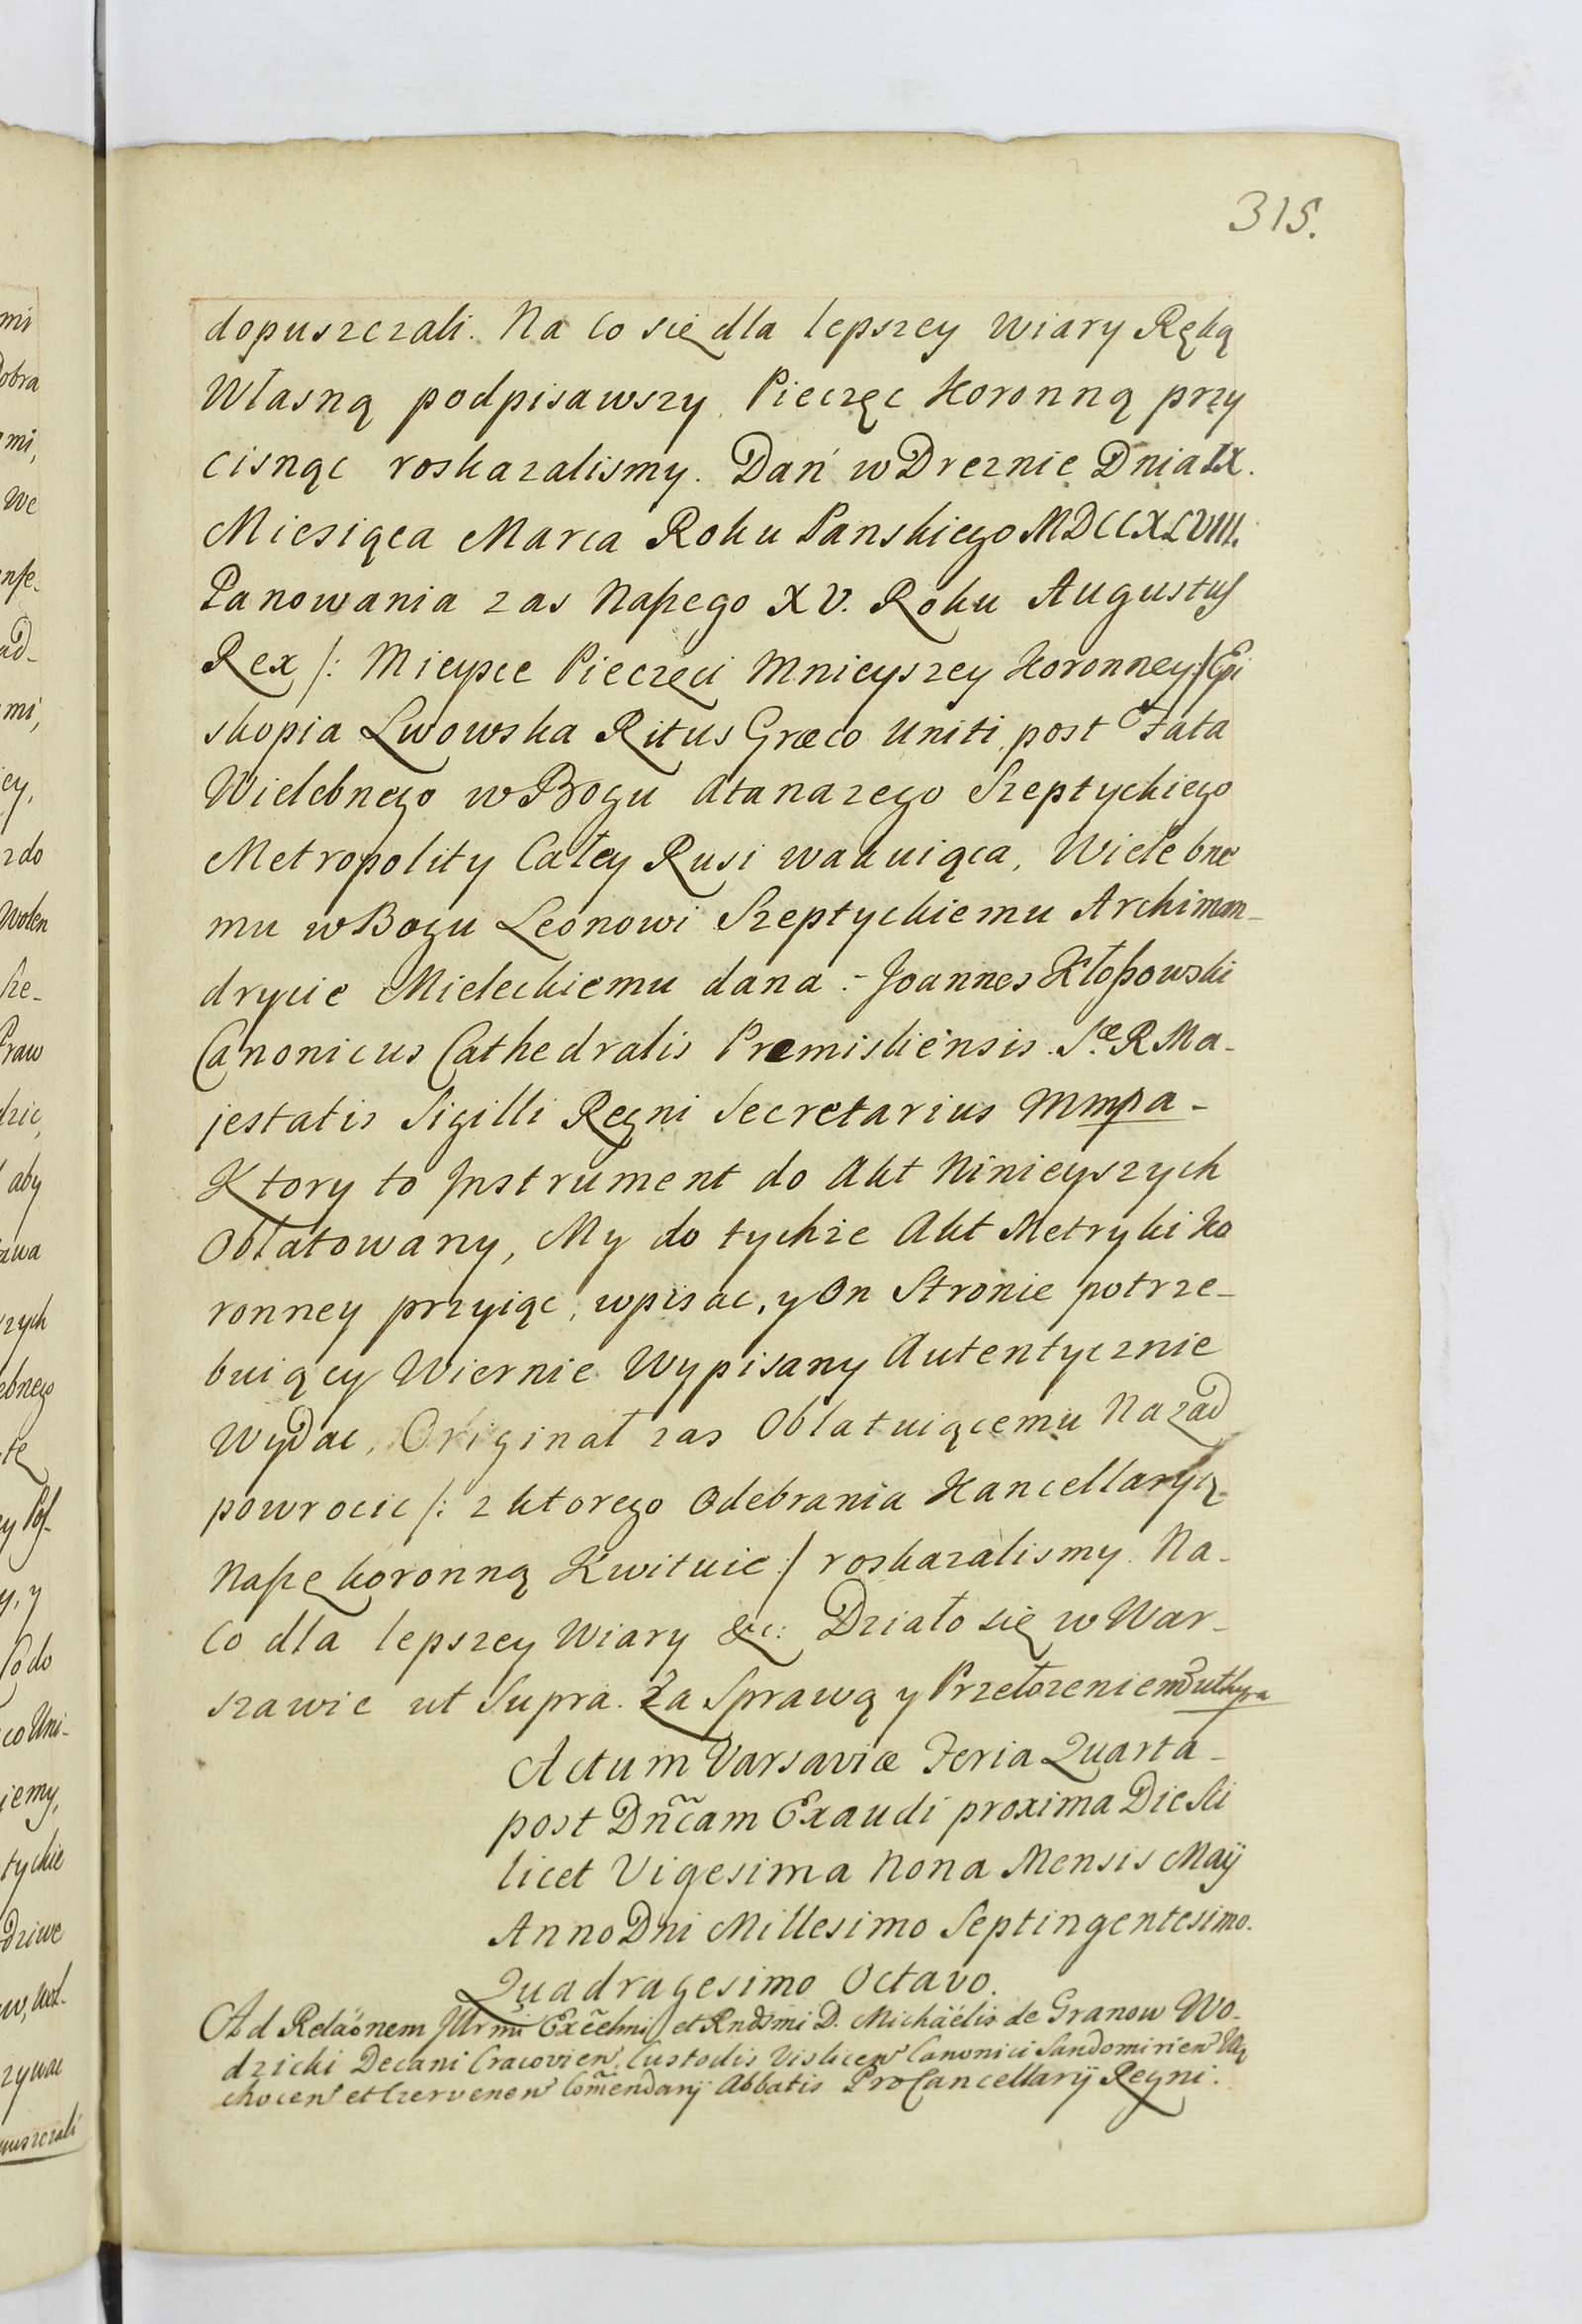 315.
dopuszczali. Na co się dla lepszey Wiary Ręką
Własną podpisawszy Pieczęc Koronną przy
cisnąc roskazalismy. Dań w Dreznie Dnia IX.
Miesiąca Marca Roku Panskiego MDCCXLVIII.
Panowania zas Naszego XV. Roku Augustus
Rex /: Mieysce Pieczęci Mnieyszey Koronney :/ Epi
skopia Lwowska Ritus Græco Uniti, post Fata
Wielebnego w Bogu Atanazego Szeptyckiego
Metropolity Całey Rusi wakuiąca, Wielebne
mu w Bogu Leonowi Szeptyckiemu Archiman-
drycie Mieleckiemu dana :- Joannes Kłossowski
Canonicus Cathedralis Premisliensis. Sæ R Ma-
jestatis Sigilli Regni Secretarius Mmpa -
Ktory to Instrument do Akt Ninieyszych
Oblatowany, My do tychże Akt Metryki Ko
ronney przyiąc, wpisac, y On Stronie potrze-
buiącey Wiernie Wypisany Autentycznie
Wydac, Originał zas Oblatuiącemu Nazad
powrocic /: z ktorego Odebrania Kancellaryą
Naszę koronną Kwituie :/ roskazalismy. Na-
Co dla lepszey Wiary &c: Działo się w War-
szawie ut Supra. Za Sprawą y Przełozeniem ut supra
Actum Varsaviæ Feria Quarta -
post Dn̄cam Exaudi proxima Die Sci
licet Vigesima Nona Mensis Maij
Anno Dni Millesimo Septingentesimo.
Quadragesimo Octavo.
Ad Relaönem Jllrmi Excelmi et Rndsmi D. Michaëlis de Granow Wo-
dzicki Decani Cracovien Custodis Vislicen Canonici Sandomirien Wą
chocen et Czervenen Com̄endarij Abbatis ProCancellarij Regni.